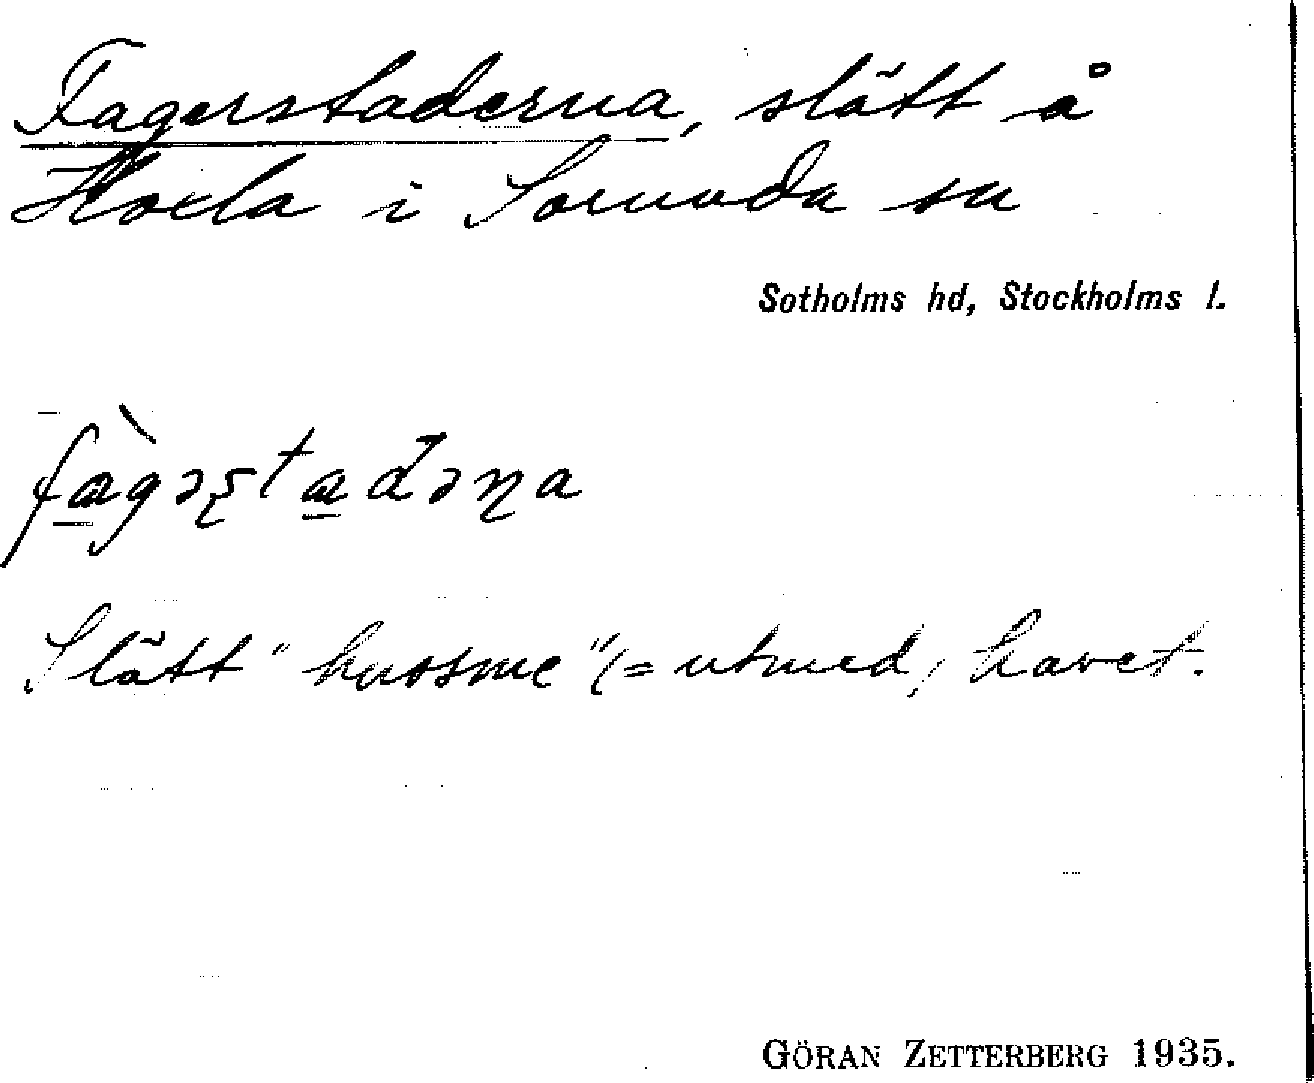 Fagerstaderna, slätt å
Hoxla i Sorunda sn
Sotholms hd, Stockholms l.
fàgəʂtadəɳa
Slätt "hussme" (= utmed) havet.
GÖRAN ZETTERBERG 1935.